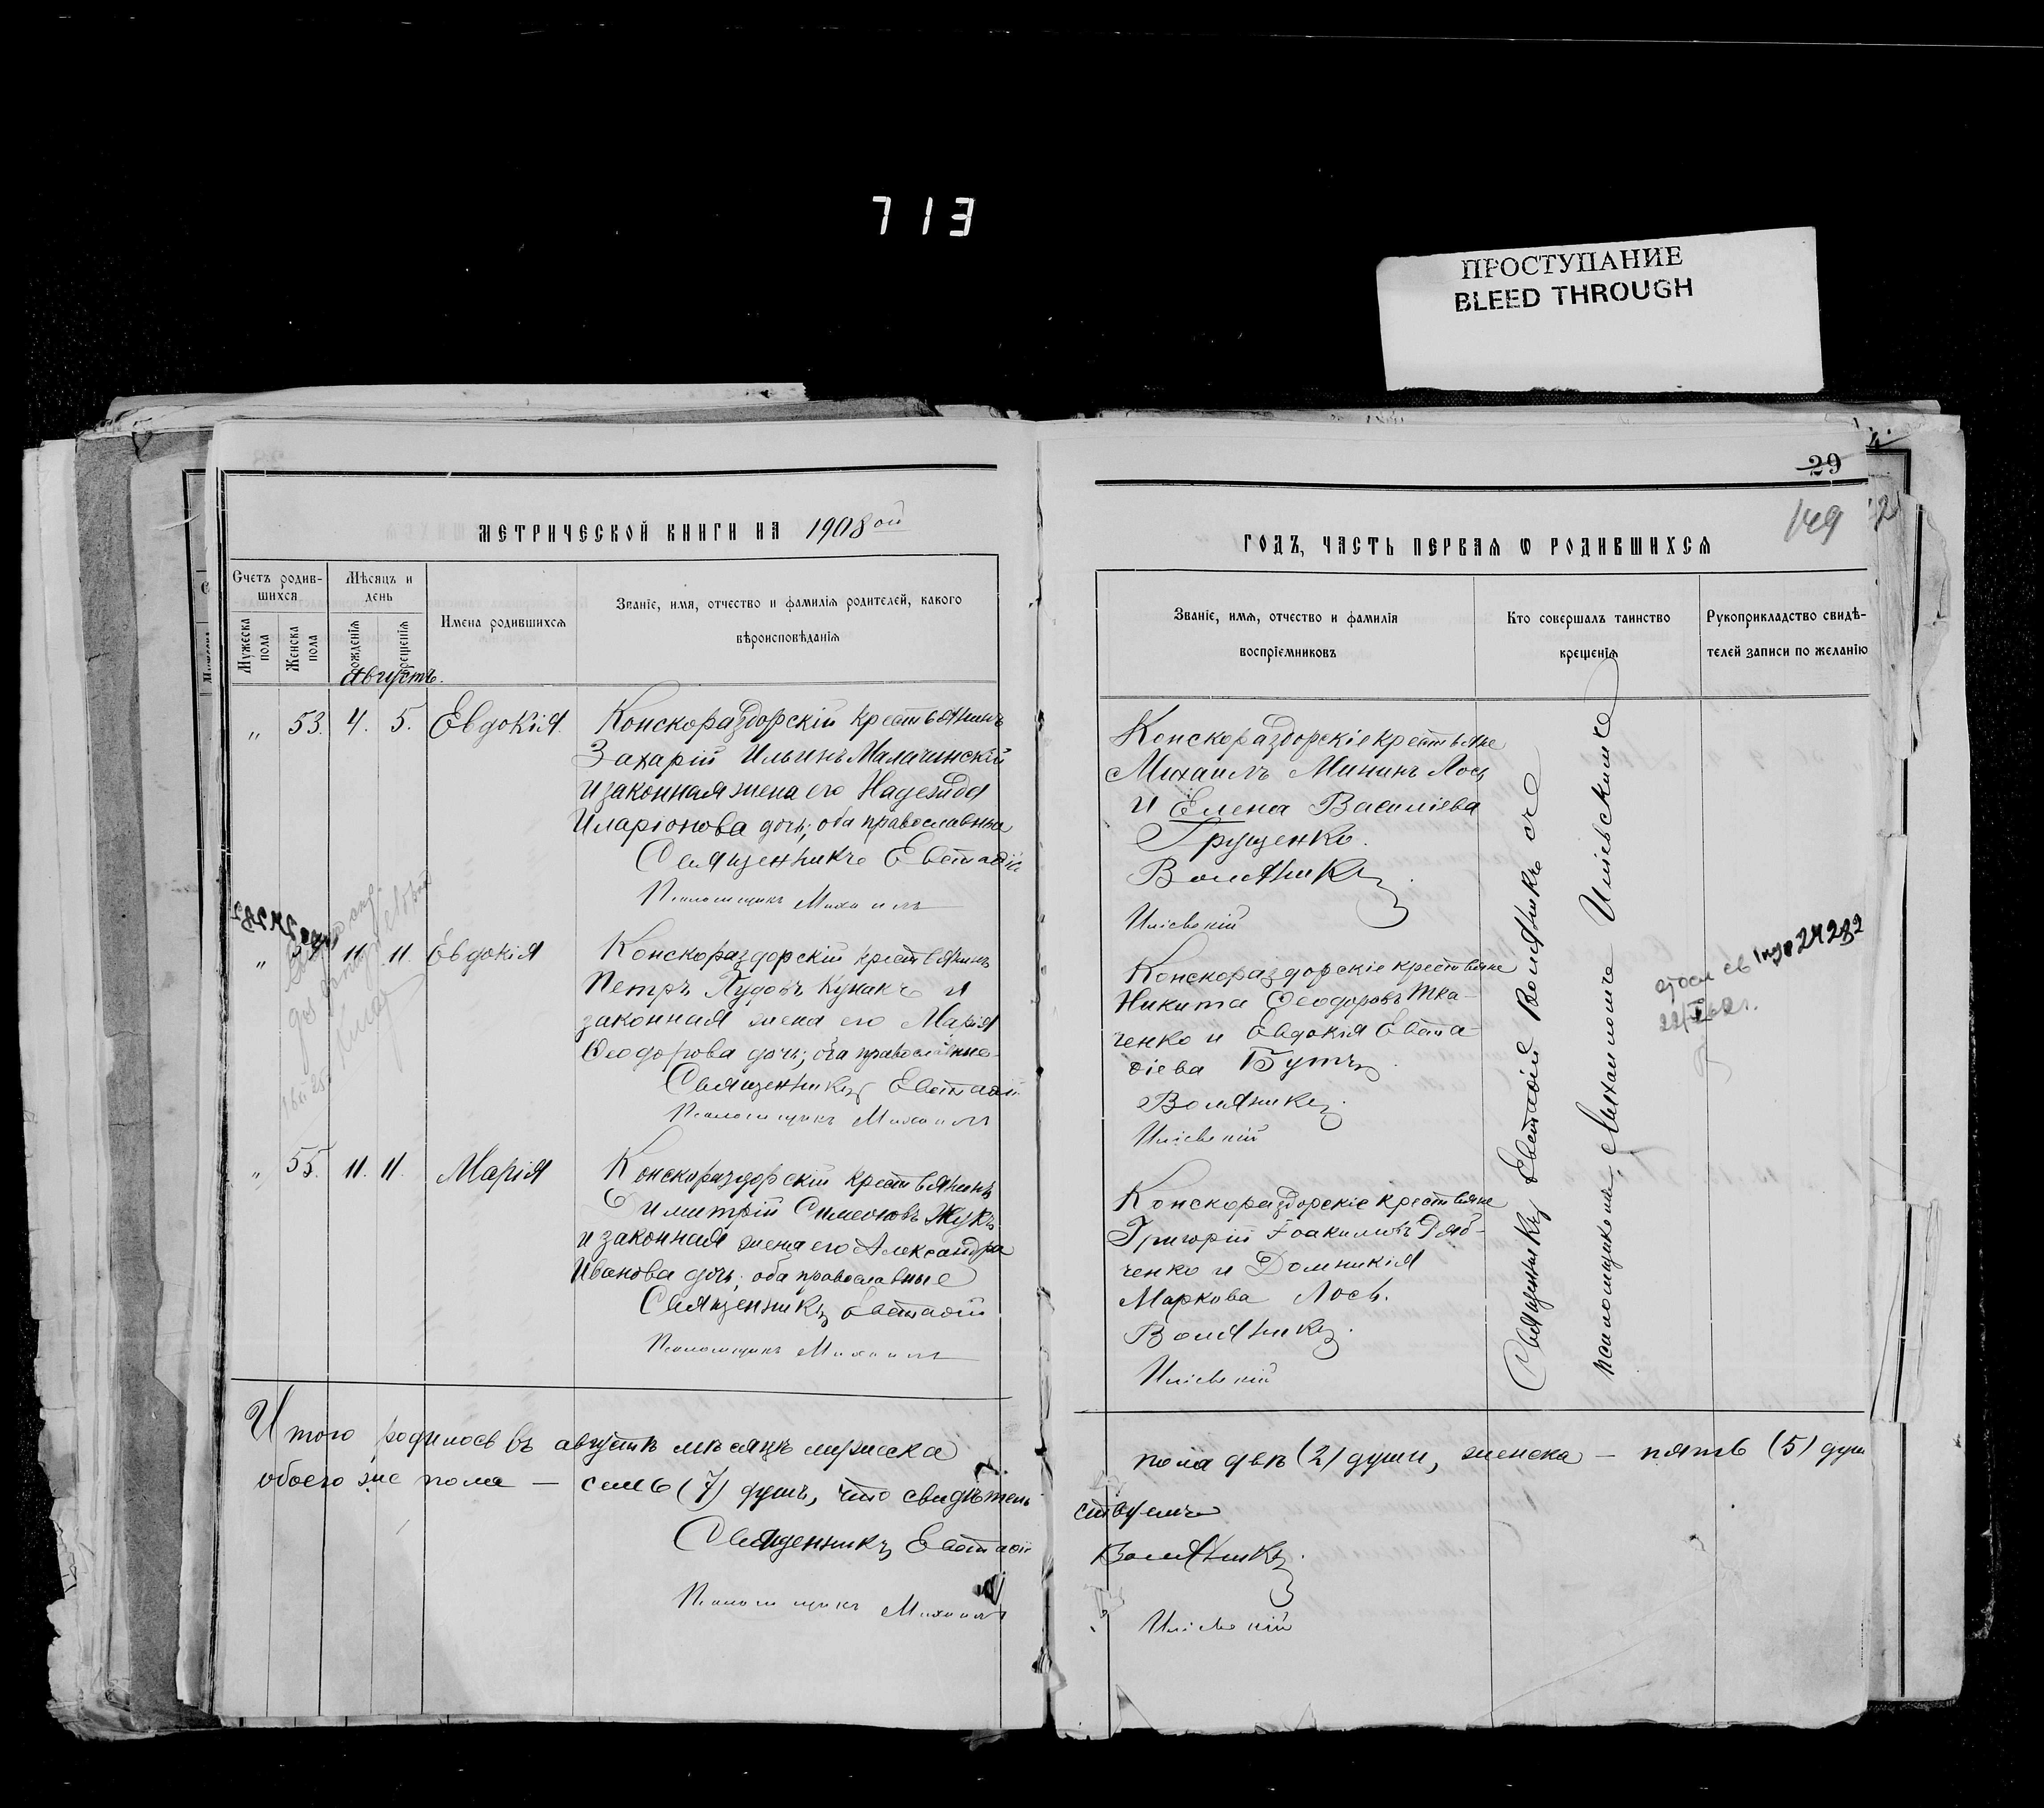 713
ПРОСТУПАНИЕ
BLEED THROUGH
МЕТРИЧЕСКОЙ КНИГИ НА 1908 ой
Счетъ родив-
шихся
Мужеска
пола
Женска
пола
Мѣсяцъ и
день
рожденія
крещенія
Имена родившихся
Званіе, имя, отчество и фамилія родителей, какого
вѣроисповѣданія
Августъ.
„ 53. 4. 5. Евдокія.
Конскораздорскій крестьянинъ
Захарій Ильинъ Малачинскій
и законная жена его Надежда
Иларіонова дочь; оба православные
Священникъ Евстафій
Псаломщикъ Михаилъ
„ 11. 11. Евдокія
Конскораздорскій крестьянинъ
Петръ Пудовъ Кунакъ и
законная жена его Марія
Ѳеодорова дочь; оба православные
Священникъ Евстафій
Псаломщикъ Михаилъ
„ 55. 11. 11. Марія
Конскораздорскій крестьянинъ
Димитрій Симеоновъ Жукъ
и законная жена его Александра
Иванова дочь; оба православные
Священникъ Евстафій
Псаломщикъ Михаилъ
Итого родилось въ августѣ мѣсяцѣ мужеска
обоего же пола — семь (7) душъ, что свидѣтель
Священникъ Евстафій
Псаломщикъ Михаилъ
29
149
ГОДЪ, ЧАСТЬ ПЕРВАЯ Ѡ РОДИВШИХСЯ
Званіе, имя, отчество и фамилія
воспріемниковъ
Кто совершалъ таинство
крещенія
Рукоприкладство свидѣ-
телей записи по желанію
Конскораздорскіе крестьяне
Михаилъ Мининъ Лось
и Елена Василіева
Грущенко.
Воляникъ.
Иліевскій
Конскораздорскіе крестьяне
Никита Ѳеодоровъ Тка-
ченко и Евдокія Евста-
фіева Бутъ.
Воляникъ.
Иліевскій
Конскораздорскіе крестьяне
Григорій Іоакимовъ Ряб-
ченко и Домникія
Маркова Лось.
Воляникъ.
Иліевскій
Священникъ Евстафій Воляникъ съ
псаломщикомъ Михаиломъ Иліевскимъ
24282
пола двѣ (2) души, женска — пять (5) душ
ствуемъ
Воляникъ.
Иліевскій